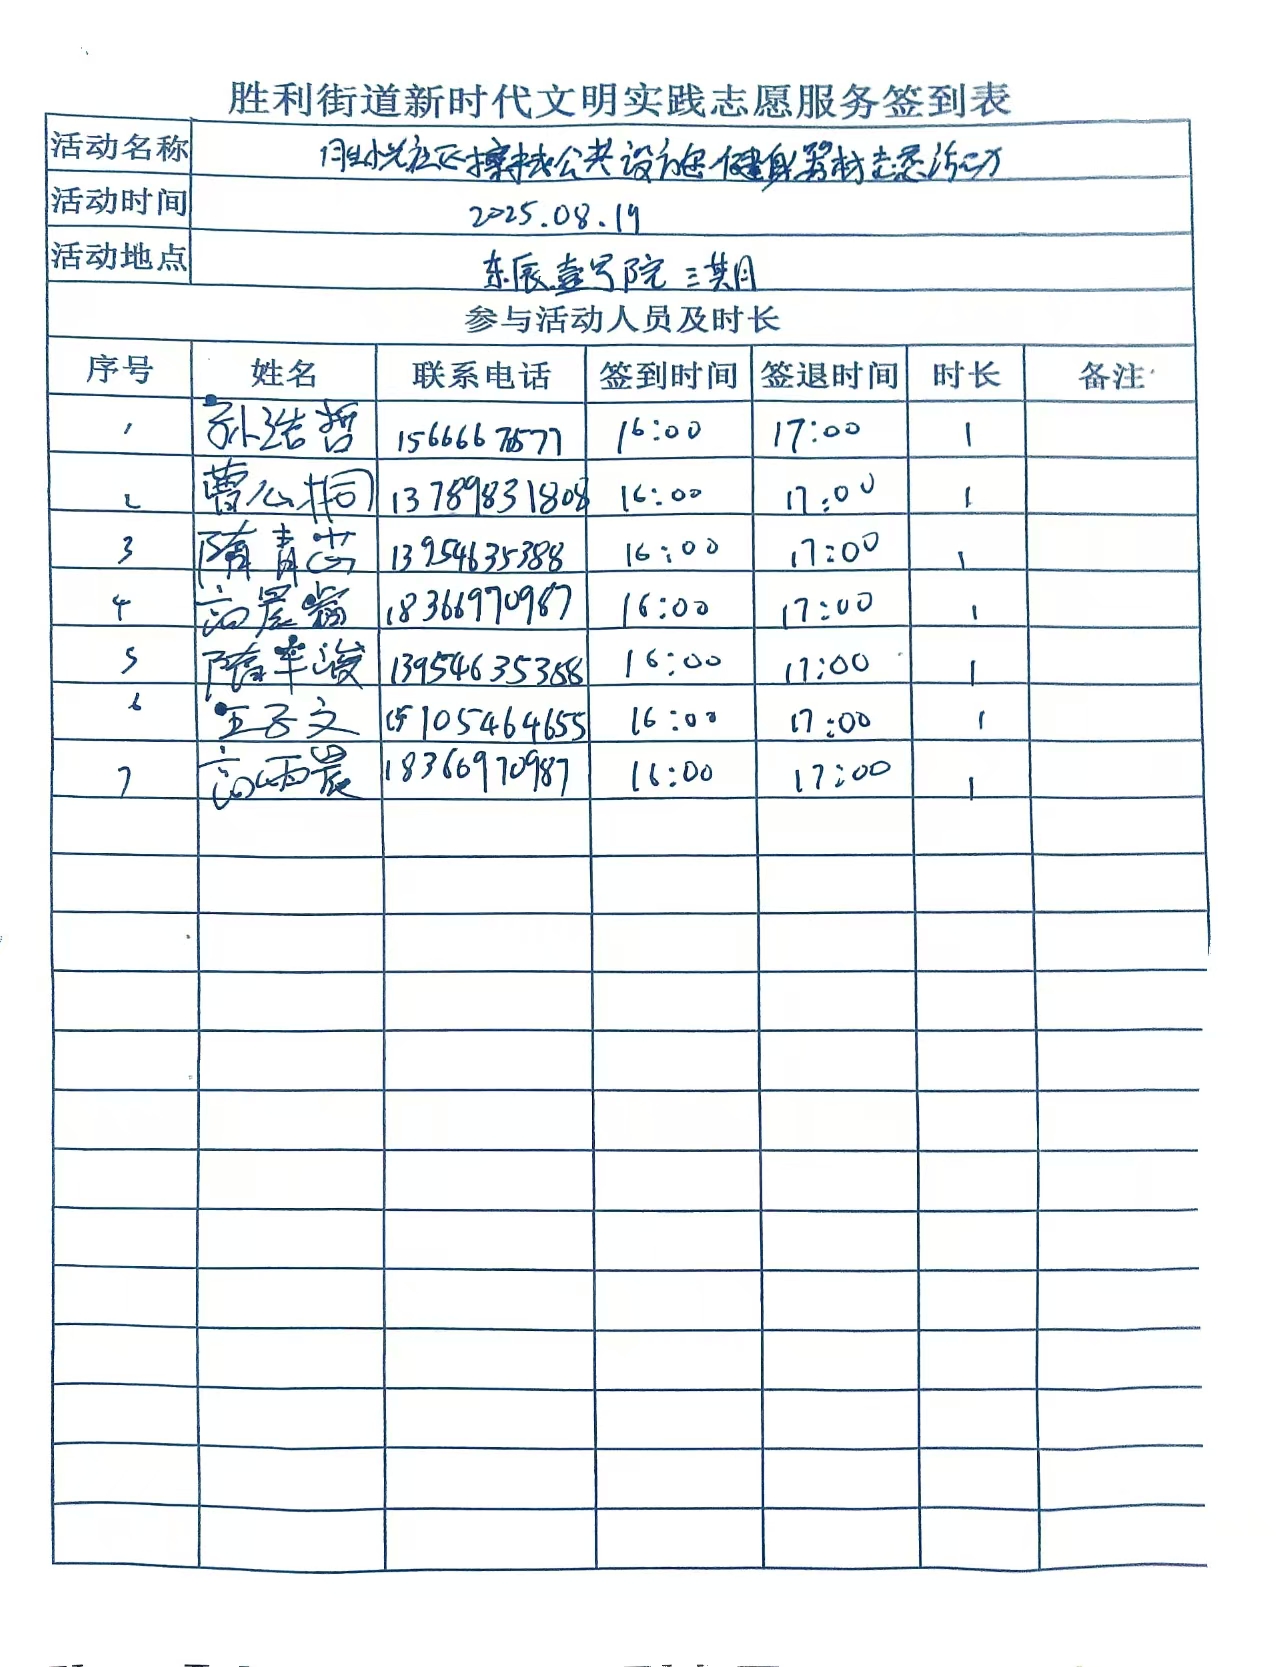 胜利街道新时代文明实践志愿服务签到表
活动名称 悦社区擦拭公共设施健身器材志愿活动
活动时间 2025.08.19
活动地点 东辰壹号院三期
参与活动人员及时长
序号 姓名 联系电话 签到时间 签退时间 时长 备注
1 孙浩哲 15666676577 16:00 17:00 1
2 曹公桐 13789831808 16:00 17:00 1
3 隋青芸 13954635388 16:00 17:00 1
4 高晨 18366970987 16:00 17:00 1
5 隋峻 13954635388 16:00 17:00 1
6 王子文 15105464655 16:00 17:00 1
7 高雨晨 18366970987 16:00 17:00 1